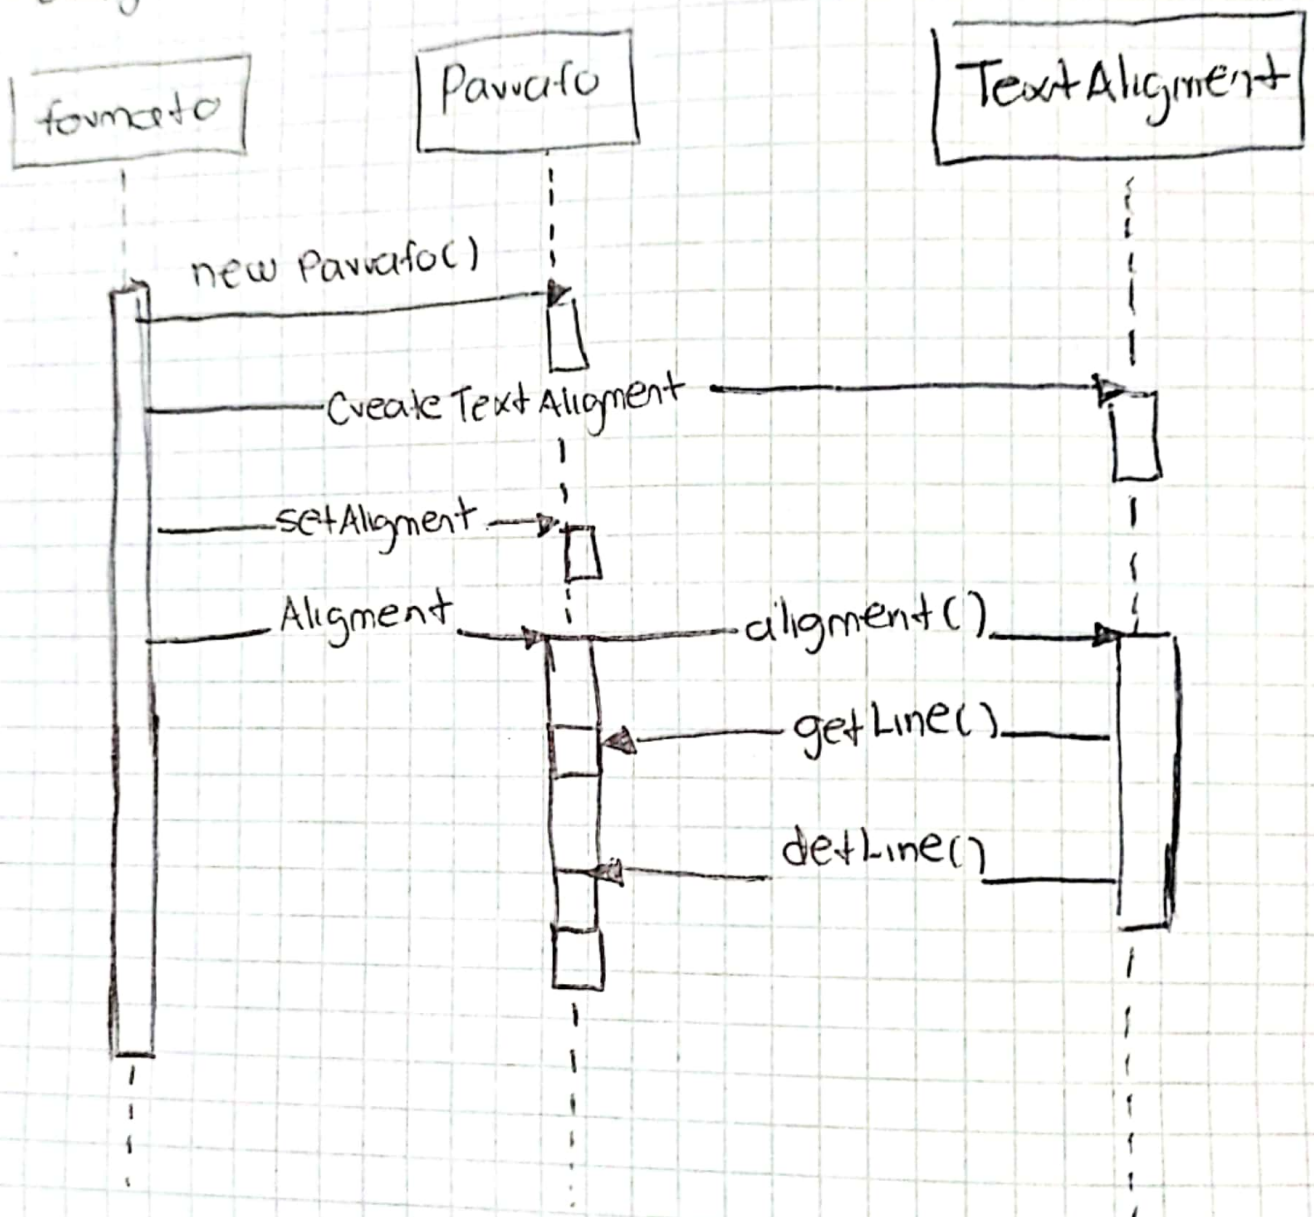 formato
Parrafo
TextAligment
new Parrafo()
Create Text Aligment
setAligment
Aligment
aligment()
getLine()
detLine()